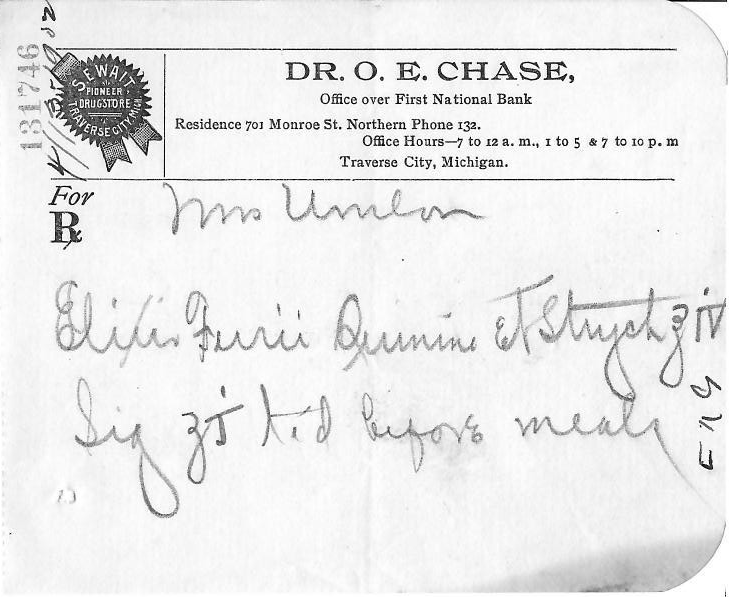 131746
S. E. WAIT
PIONEER
DRUGSTORE
TRAVERSE CITY, MICH.
DR. O. E. CHASE,
Office over First National Bank
Residence 701 Monroe St. Northern Phone 132.
Office Hours—7 to 12 a. m., 1 to 5 & 7 to 10 p. m
Traverse City, Michigan.
For Mrs
℞
Elixir Ferrii Quinine Et Strych ʒ iv
Sig ʒ i t.i.d before meals